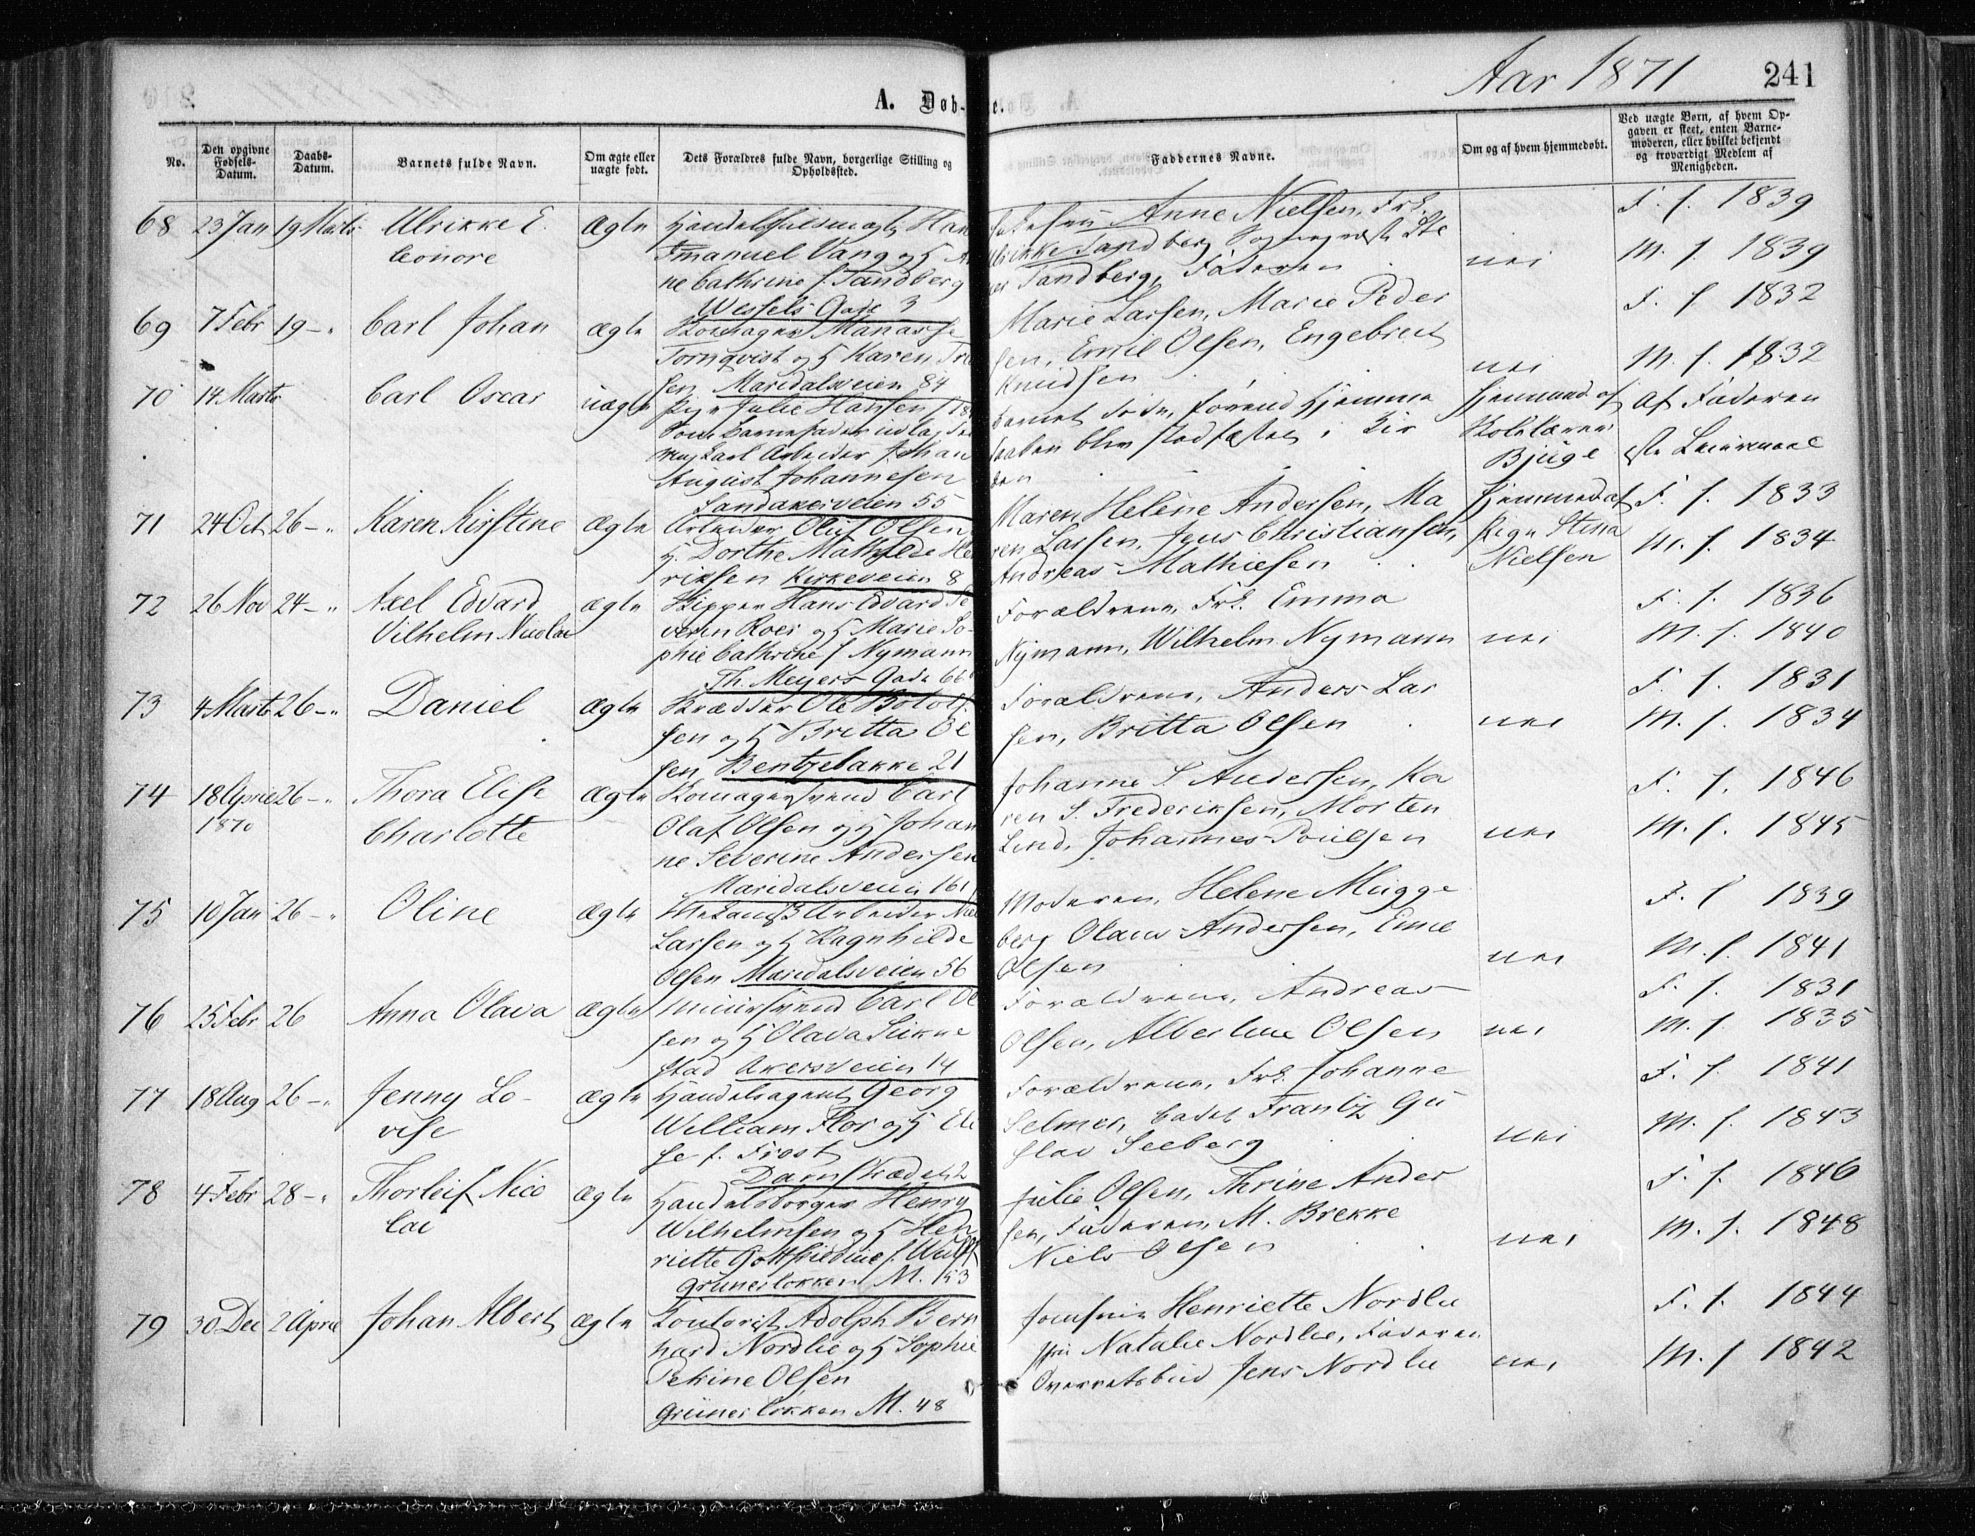 Aar 1871
241
A. Døb-
te.
No.
Den opgivne Fødsels-Datum.
Daabs-Datum.
Barnets fulde Navn.
Om ægte eller uægte født.
Dets Forældres fulde Navn, borgerlige Stilling og Opholdssted.
Faddernes Navne.
Om og af hvem hjemmedøbt.
Ved uægte Børn, af hvem Opgaven er skeet, enten Barnemoderen, eller hvilket bekjendt og troværdigt Medlem af Menigheden.
68 23 Jan 19 Marts Ulrikke E. ægte Handelsfuldmægtig Han
leonore Emanuel Vang og H. An
ne Cathrine f. Tandberg
Wessels Gade 3
Anne Nielsen, Frk. F. f. 1839
Ulrikke Tandberg
Tandberg, Faderen nei M. f. 1839
69 7 Febr 19 - " Carl Johan ægte Skomager Manasse
Tornqvist og H. Karen
sen Maridalsveien 84
Marie Larsen, Marie Peder F. f. 1832
sen, Emil Olsen, Engebret
Knudsen nei M. f. 1832
70 14 Marts Carl Oscar uægte Pige Julie Hansen
som Barnefader udlagt
Arbeider Johan
August Johannesen
Sandakerveien 55
Barnet døde, førend Hjemme
daaben blev stadfæstet i Kir
ken
Hjemmed. af
Bjuge
Af Faderen
71 24 Oct 26 - " Karen Kirstine ægte Arbeider Oluf Olsen
H. Dorthe Mathilde He
riksen Kirkeveien 8
Maren Helene Andersen, Ma
ren Larsen, Jens Christiansen,
Andreas Mathiesen
Hjemmed. af
Pige Stina
Nielsen
F. f. 1833
M. f. 1834
72 26 Nov 24 - " Axel Edvard ægte Skipper Hans Edvard Se
Vilhelm Nicolai verin Roer og H. Marie So-
phie Cathrine f. Nymann
Th. Meyers Gade 66
Forældrene, Frk. Emma F. f. 1836
Nymann, Wilhelm Nymann nei M. f. 1840
73 4 Marts 26 - " Daniel ægte Skrædder Ole Bololf
sen og H. Britta Ol
sen Bentzebakke 21
Forældrene, Anders Lar F. f. 1831
sen, Britta Olsen nei M. f. 1834
74 18 April 26 - " Thora Elise ægte Skomagersvend Carl
1870 Charlotte Olaf Olsen og H. Johan
ne Severine Andersen
Maridalsveien 161
Johanne S. Andersen, Ka F. f. 1846
ren S. Frederiksen, Morten
Lind, Johannes Poulsen nei M. f. 1845
75 10 Jan 26 - " Oline ægte Mekanisk Arbeider
Larsen og H. Ragnhilde
Olsen Maridalsveien 56
Moderen, Helene Mugge F. f. 1839
berg Olaus Andersen, Emil
Olsen nei M. f. 1841
76 25 Febr 26 Anna Olava ægte Muursvend Carl Ol
sen og H. Olava
stad Akersveien 14
Forældrene, Andreas F. f. 1831
Olsen, Albertine Olsen nei M. f. 1835
77 18 Aug 26 - " Jenny Lo- ægte Handelsagent Georg
vise William Flor og H. Eli
se f. Frost
Damstrædet 2
Forældrene, Frk. Johanne F. f. 1841
Selmer, Cadet Frantz Gu
stav Seeberg nei M. f. 1843
78 4 Febr 28 - " Thorleif Nico ægte Handelsborger Henry
lai Wilhelmsen og H. Hen
riette Gottfriedine f. Wulff
Grünerløkken M. 153
Julie Olsen, Thrine Ander F. f. 1846
sen, Faderen, M. Brekke
Niels Olsen nei M. f. 1848
79 30 Dec 2 April Johan Albert ægte Contorist Adolph Bern
hard Nordlie og H. Sophie
Petrine Olsen
Grünerløkken M. 48
Jomfru Henriette Nordlie F. f. 1844
Natalie Nordlie, Faderen
Overretsbud Jens Nordlie nei M. f. 1842